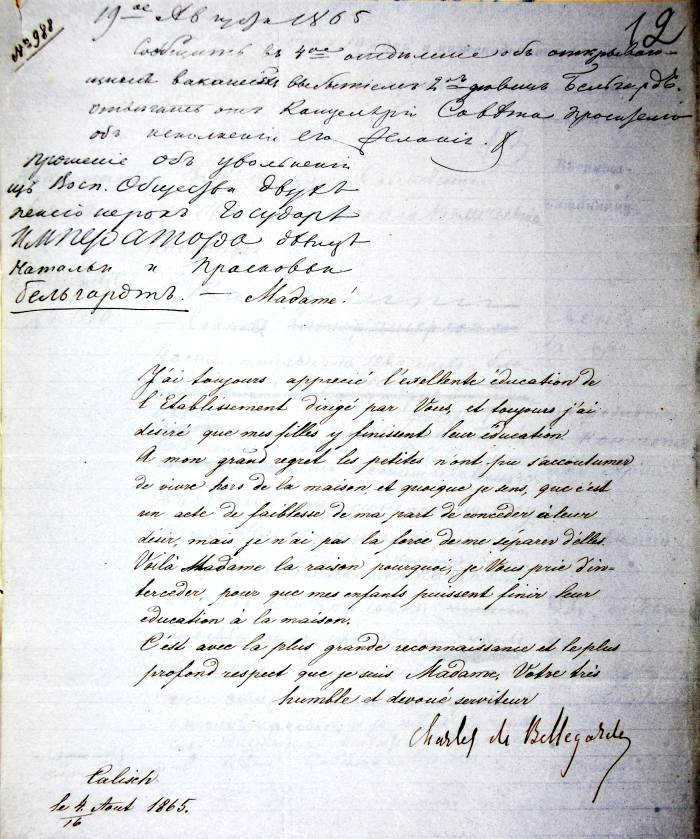 № 988
19го Августа 1865
12
Сообщить въ 4ое отделение об открываю-
щихся вакансіях выбытіем 2хъ девиц Бельгардъ.
от Канцеляріи Совѣта
об исполненіи его
Прошеніе об увольненіи
изъ Восп. Общества двухъ
пенсіонерокъ Государя
Императора девицъ
Натальи и Прасковьи
Бельгардтъ. — Madame!
J'ai toujours apprecié l'exellente éducation de
l'Etablissement dirigé par Vous, et toujours j'ai
désiré que mes filles y finissent leur éducation.
A mon grand regret les petites n'ont pu s'accoutumer
de vivre hors de la maison et quoique je sens, que c'est
un acte de faiblesse de ma part de conceder à leur
désir, mais je n'ai pas la force de me séparer d'elles
Voilà Madame la raison pourquoi, je Vous prie d'in-
terceder, pour que mes enfants puissent finir leur
éducation à la maison.
C'est avec la plus grande reconnaissance et le plus
profond respect que je suis Madame, Votre très
humble et devoué serviteur
Charles de Bellegarde
Calisch
le 4/16 Aout 1865.